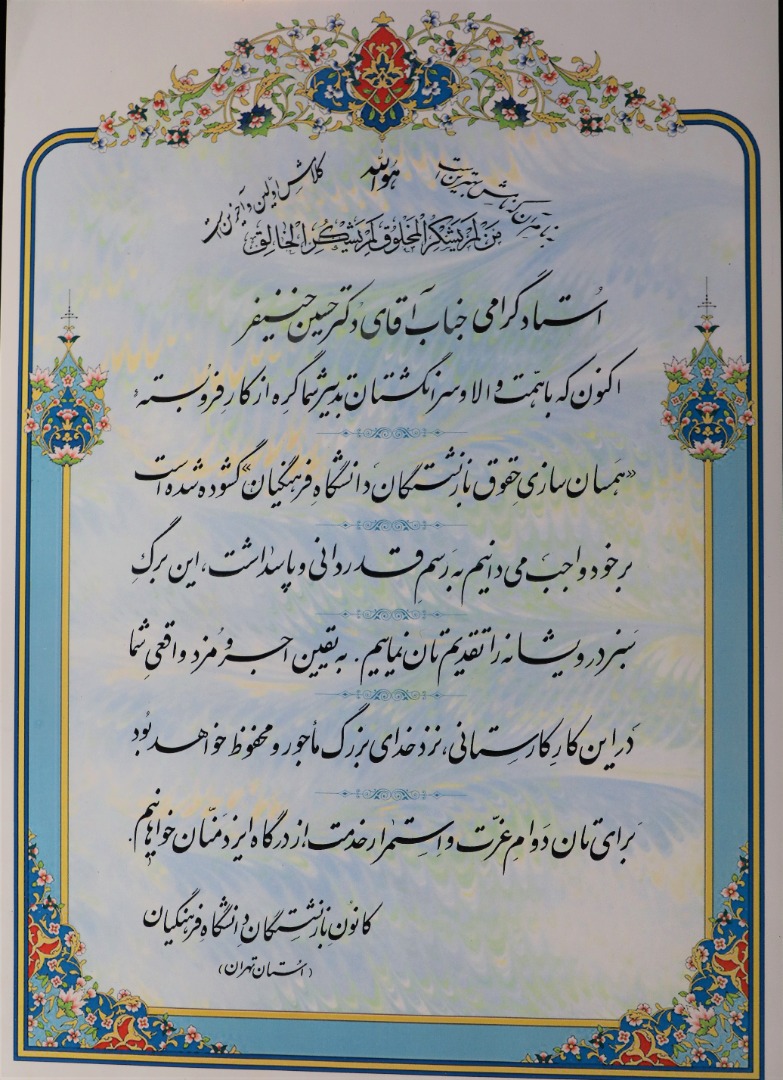 هوالله
به نام آن که نامش بهترین است
کلامش اولین و آخرین است
مَن لَم یَشکُرِ المَخلوق لَم یَشکُرِ الخالِق
اُستاد گرامی جناب آقای دکتر حسین خنیفر
اکنون که با همّت والا و سرانگشتان تدبیر شما گره از کارِ فروبستهٔ
«همسان سازی حقوق بازنشستگان دانشگاه فرهنگیان» گشوده شده است
برخود واجب می دانیم به رَسمِ قدردانی و پاسداشت، این برگِ
سَبز درویشانه را تقدیم تان نماییم. به یقین اجر و مُزد واقعیِ شما
دَر این کارِ کارستانی، نزد خدای بزرگ مأجور و محفوظ خواهد بُود
بَرای تان دَوامِ عزّت و اِستِمرار خدمت، از درگاه ایزد منّان خواهانیم.
کانون بازنشستگان دانشگاه فرهنگیان
(اُستان تهران)